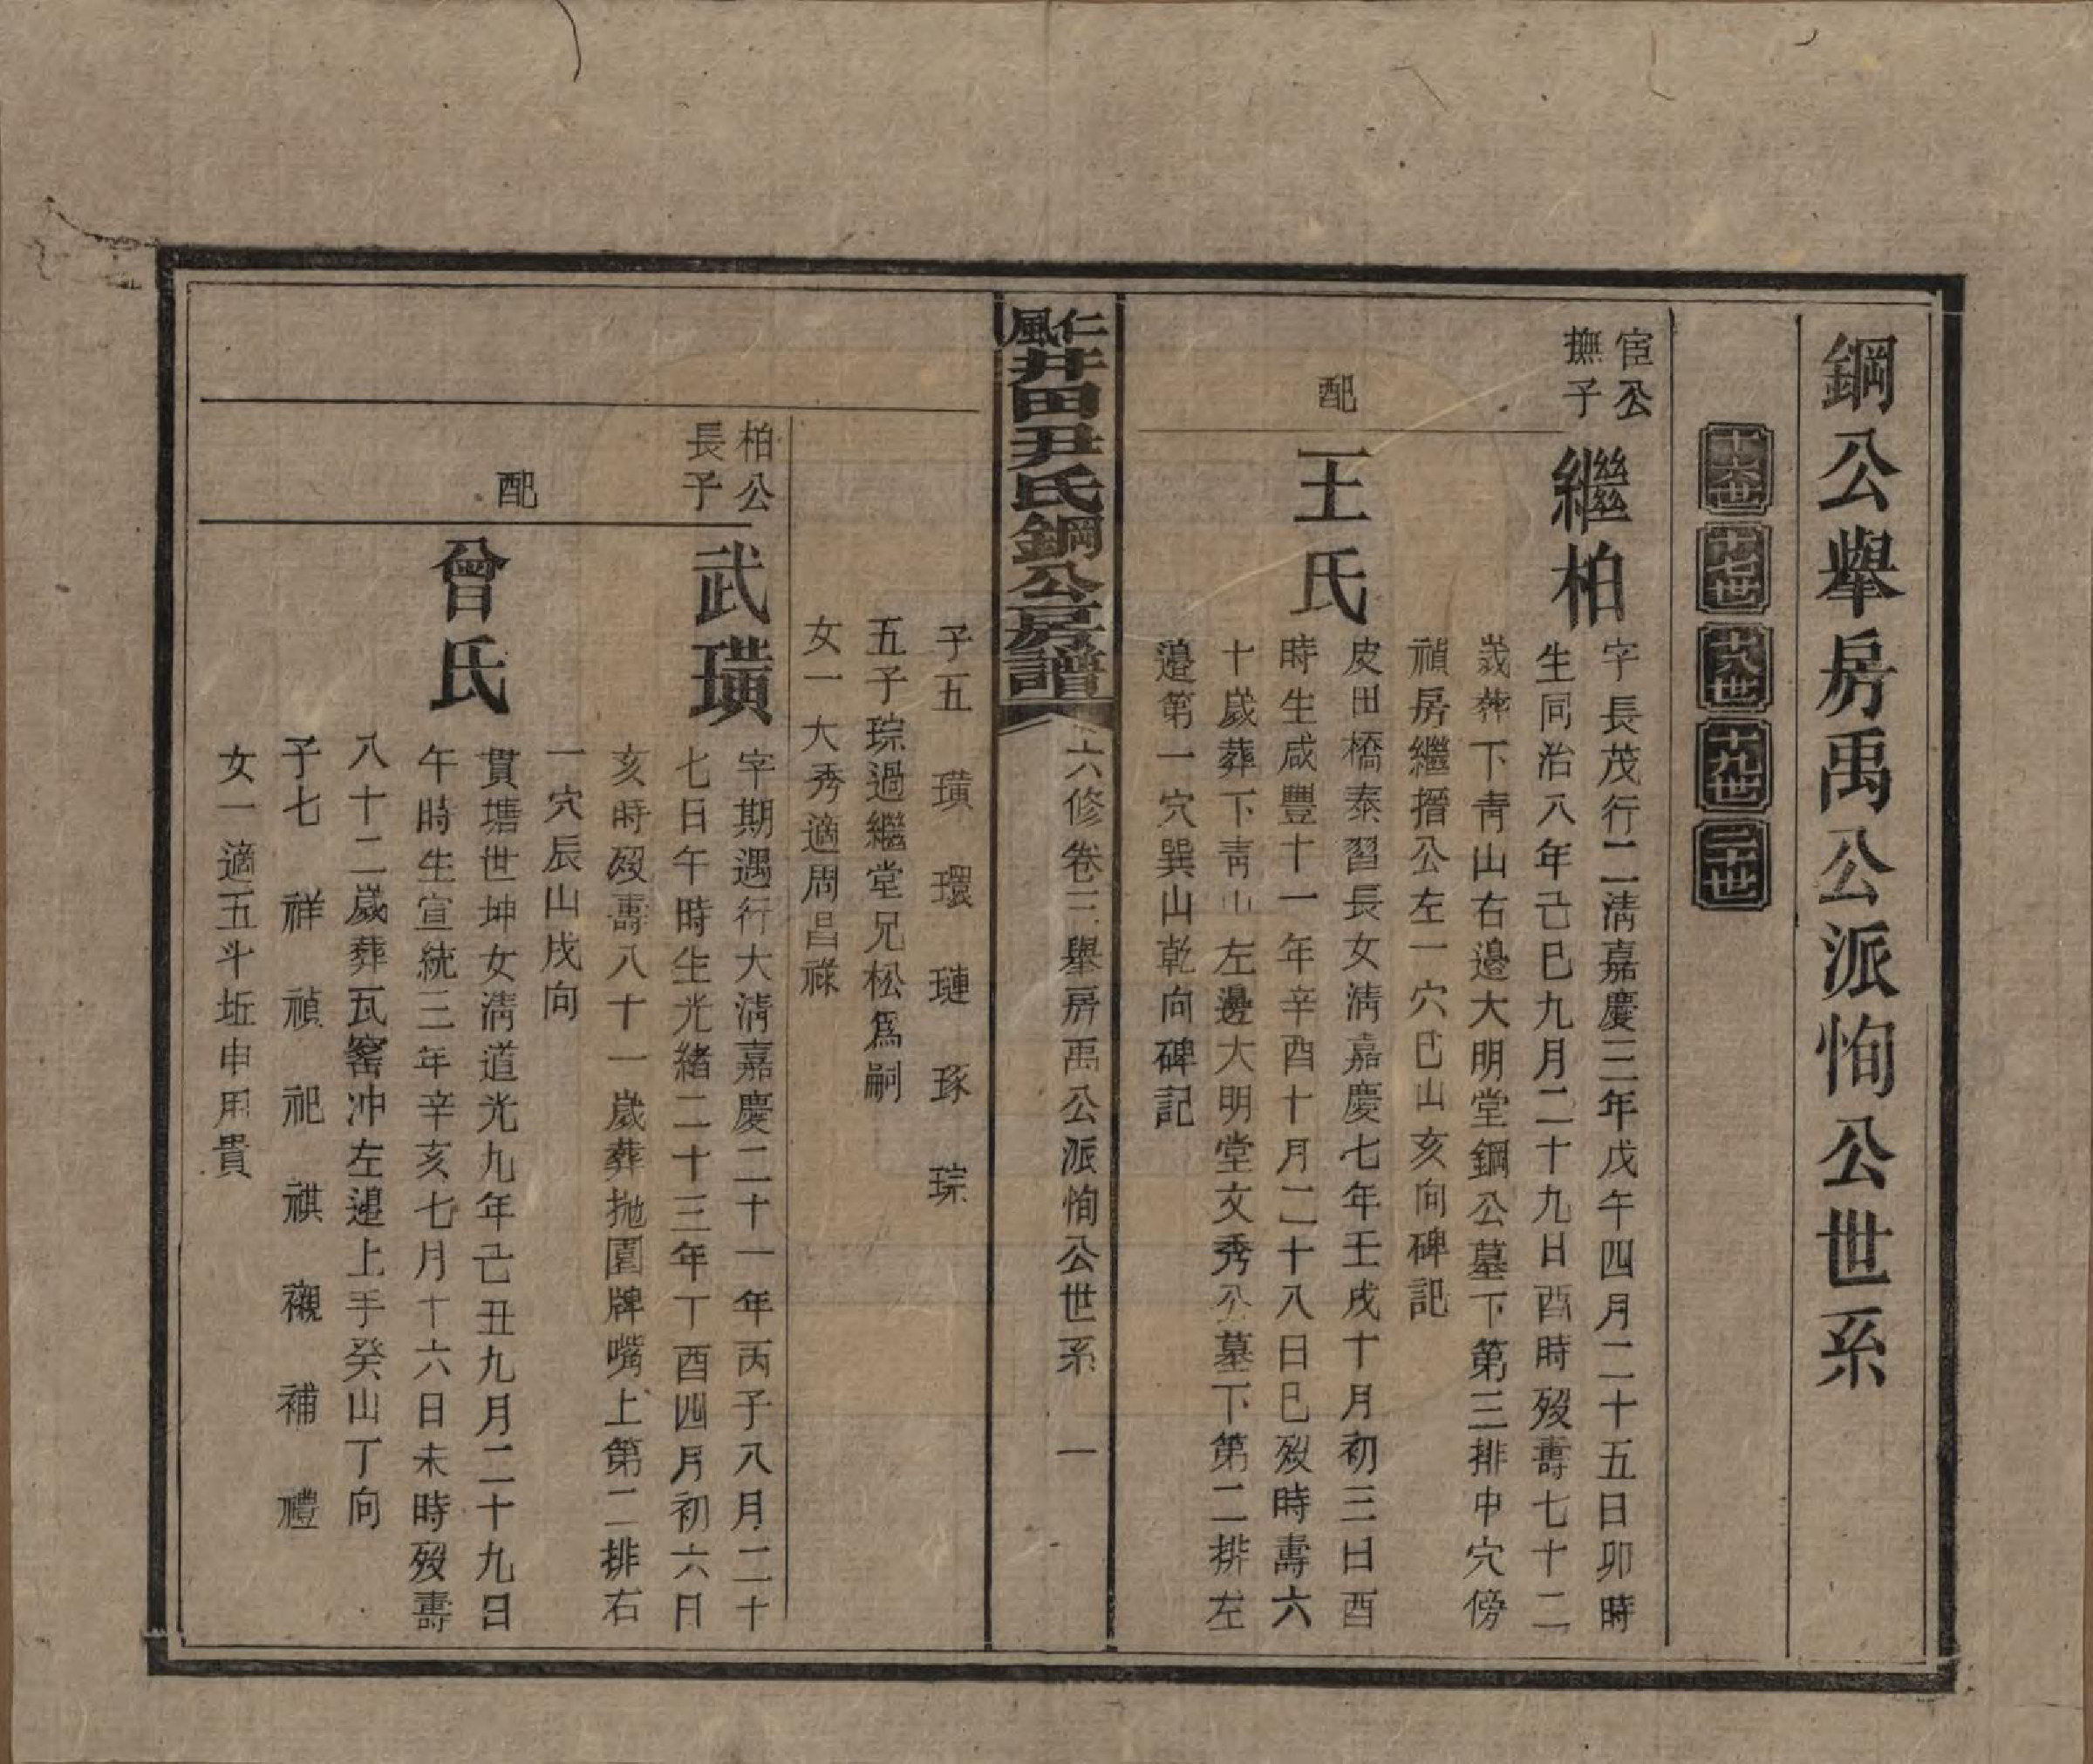 鋼公舉房禹公派恂公世系
十六世
十七世
十八世
十九世
二十世
宦公
撫子
繼柏
字長茂行二清嘉慶三年戊午四月二十五日卯時
生同治八年己巳九月二十九日酉時歿壽七十二
歲葬下青山右邉大明堂鋼公墓下第三排中穴傍
禎房繼搢公左一穴巳山亥向碑記
配
王氏
皮田橋泰習長女清嘉慶七年壬戌十月初三日酉
時生咸豐十一年辛酉十月二十八日巳歿時壽六
十歲葬下青山左邊大明堂文秀公墓下第二排左
邉第一穴巽山乾向碑記
仁風井田尹氏鋼公房譜
六修卷三舉房禹公派恂公世系 一
子五 璜 環 璉 琢 琮
五子琮過繼堂兄松爲嗣
女一大秀適周昌祿
柏公
長子
武璜
字期遇行大清嘉慶二十一年丙子八月二十
七日午時生光緒二十三年丁酉四月初六日
亥時歿壽八十一歲葬拋園牌嘴上第二排右
一穴辰山戌向
配
曾氏
貫塘世坤女清道光九年己丑九月二十九日
午時生宣統三年辛亥七月十六日未時歿壽
八十二歲葬瓦窰冲左邉上手癸山丁向
子七 祥 禎 祀 祺 襯 補 禮
女一適五斗坵申用貴